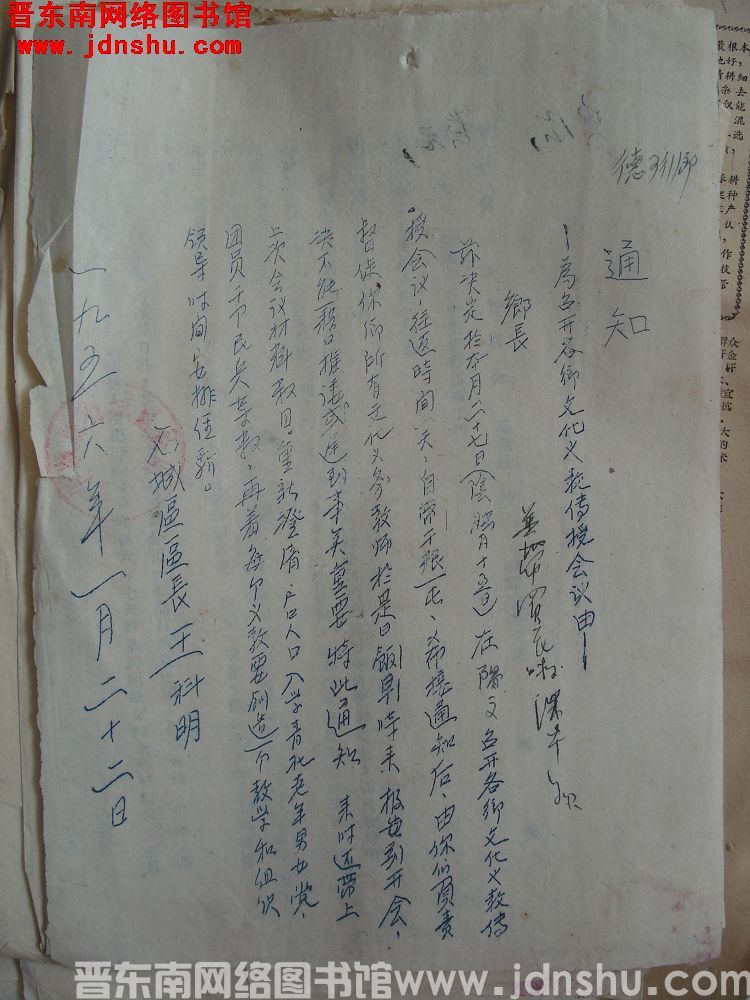 晋东南网络图书馆
www.jdnshu.com
通知
—为召开各乡文化义教传授会议由—
鄉長
兹决定於本月二十七日(陰腊月十五日)在陽文召开各鄉文化义教传
授会议,往返時間一天,自帶干粮一天、希接通知后、由你们負責
督促你鄉所有文化义务教师於是日飯早時来报告到开会,
决不能藉口推诿或迟到事关重要特此通知 来时还带上
上次会议材料数目。重新澄清户口人口入学青壮老年男女党、
团员干部民兵等数、再着每个义教要创造一个教学和组织
领导时间安排经验。
石城區區長王科明
一九五六年一月二十二日
晋东南网络图书馆 www.jdnshu.com